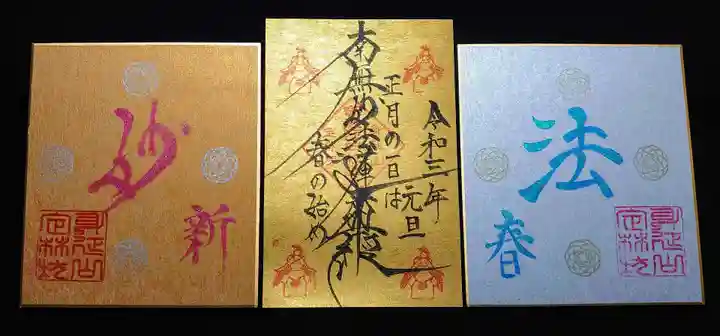 妙
新
身延山
定林坊
令和三年
元旦
正月の一日は
南無妙法蓮華経
春の始め
法
春
身延山
定林坊